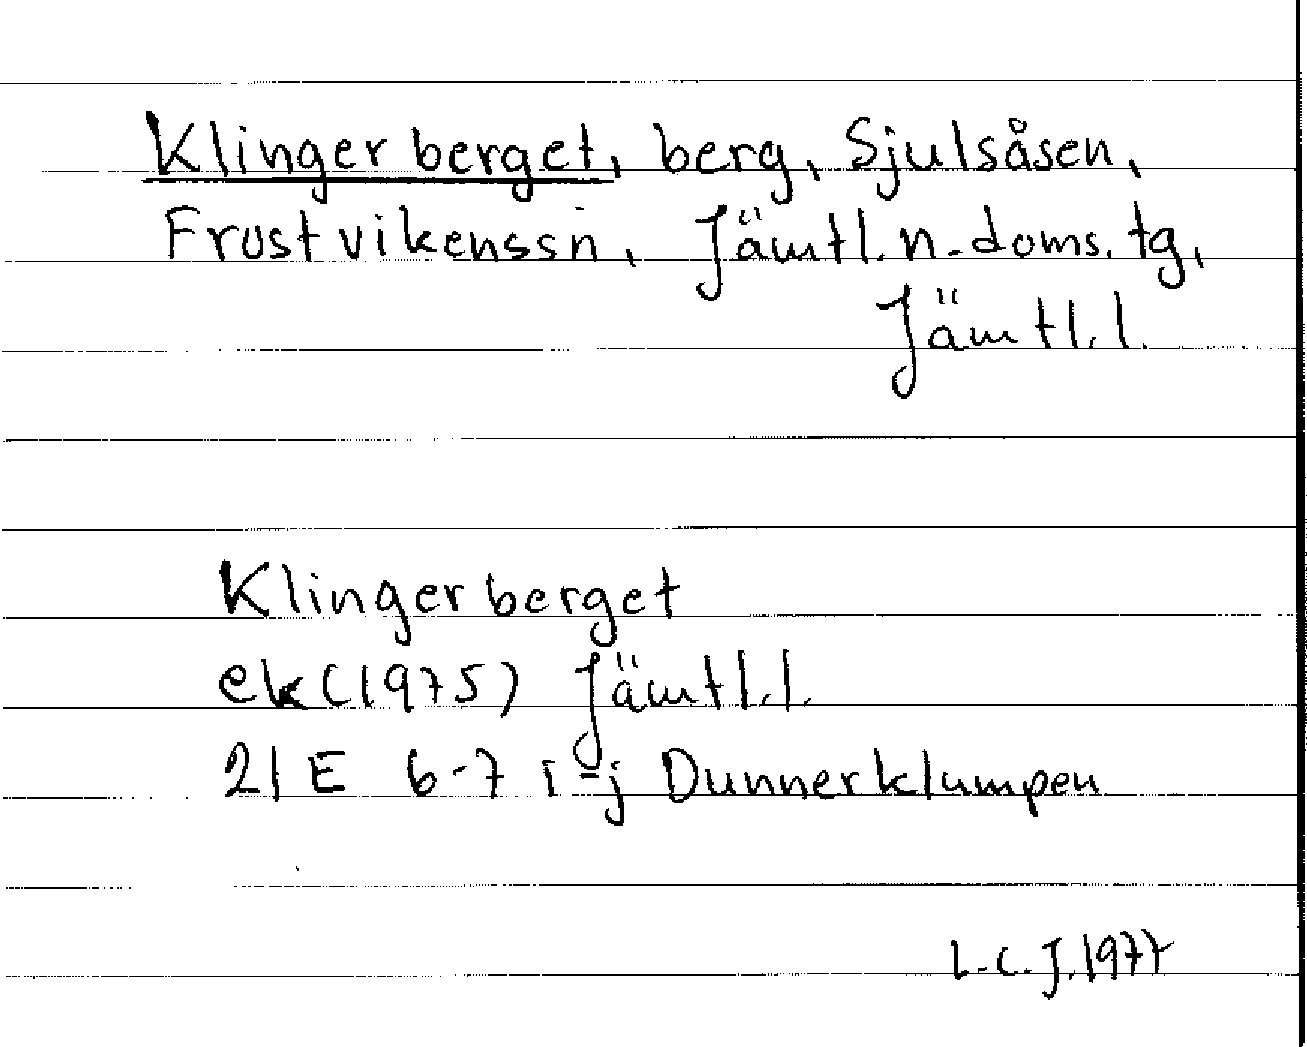 Klingerberget, berg, Sjulsåsen,
Frostvikens sn, Jämtl. n. doms. tg,
Jämtl. l.
Klingerberget
ek (1975) Jämtl. l.
21 E 6-7 i-j Dunnerklumpen
L-C. J. 1977